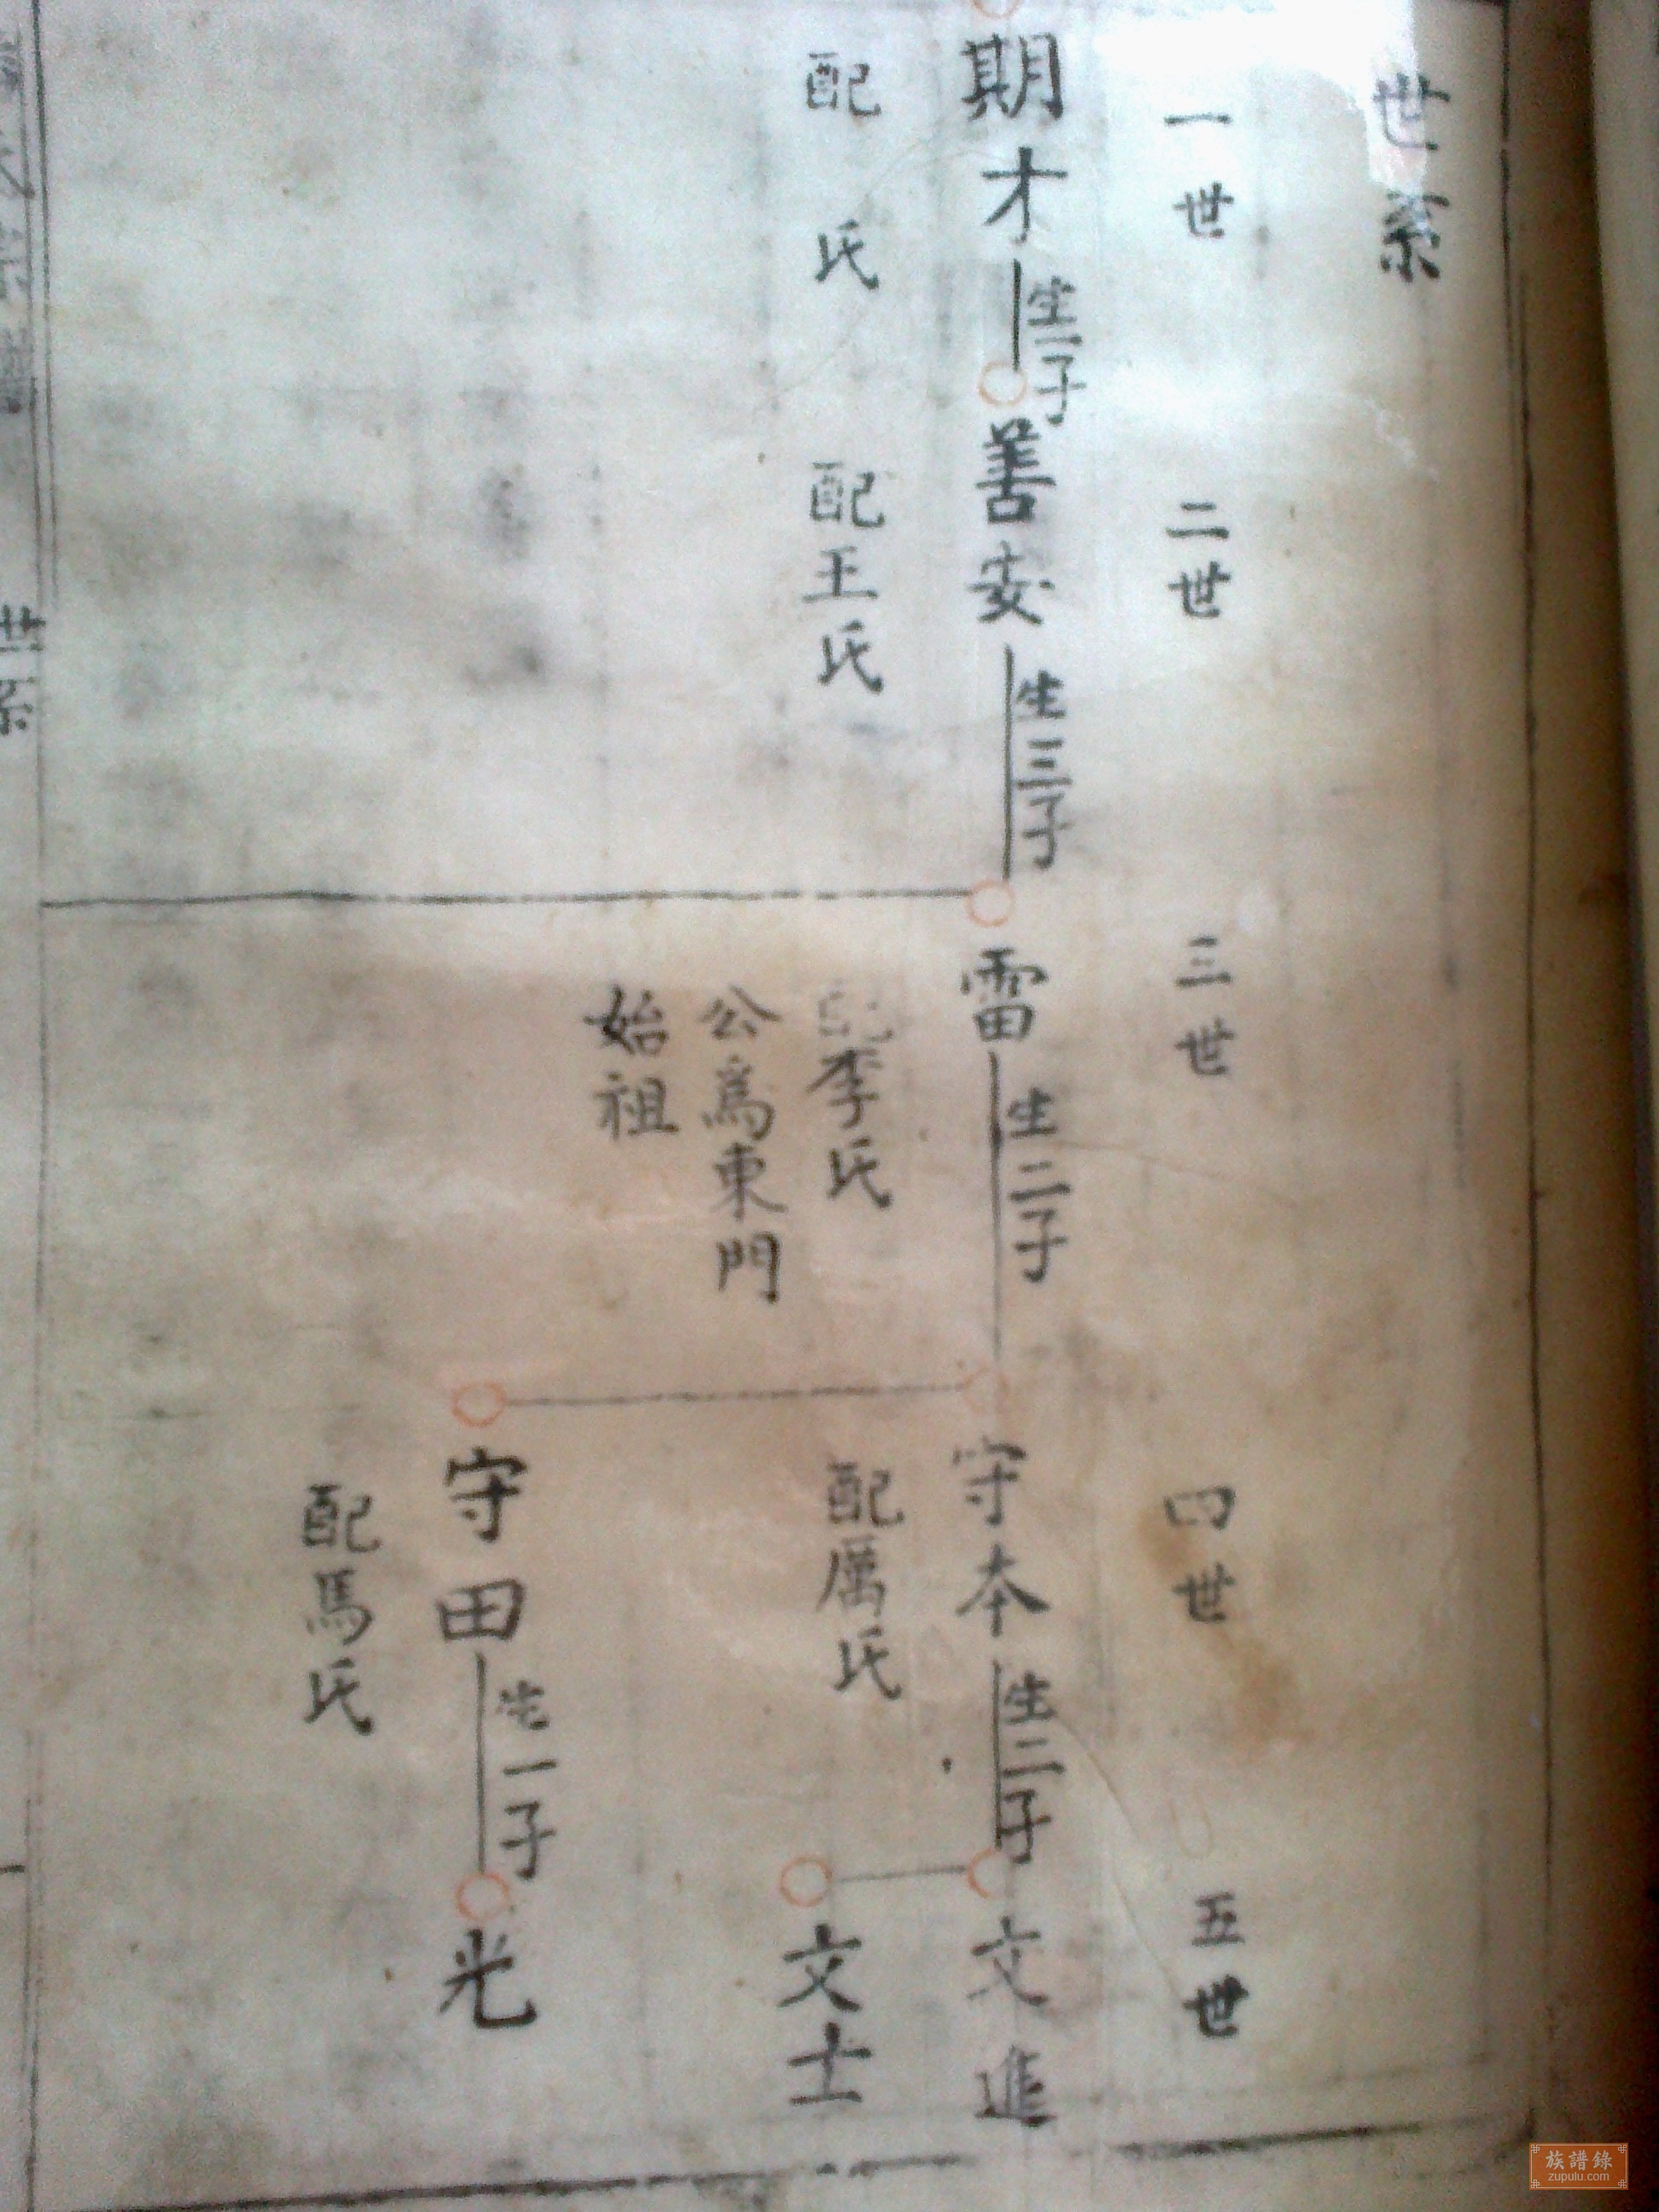 世系
一世
二世
三世
四世
五世
期才
生一子
善安
生三子
雷
生二子
守本
生二子
文進
配 氏
配王氏
配李氏
配厲氏
文士
公爲東門
始祖
守田
生一子
光
配馬氏
世系
族譜錄
zupulu.com